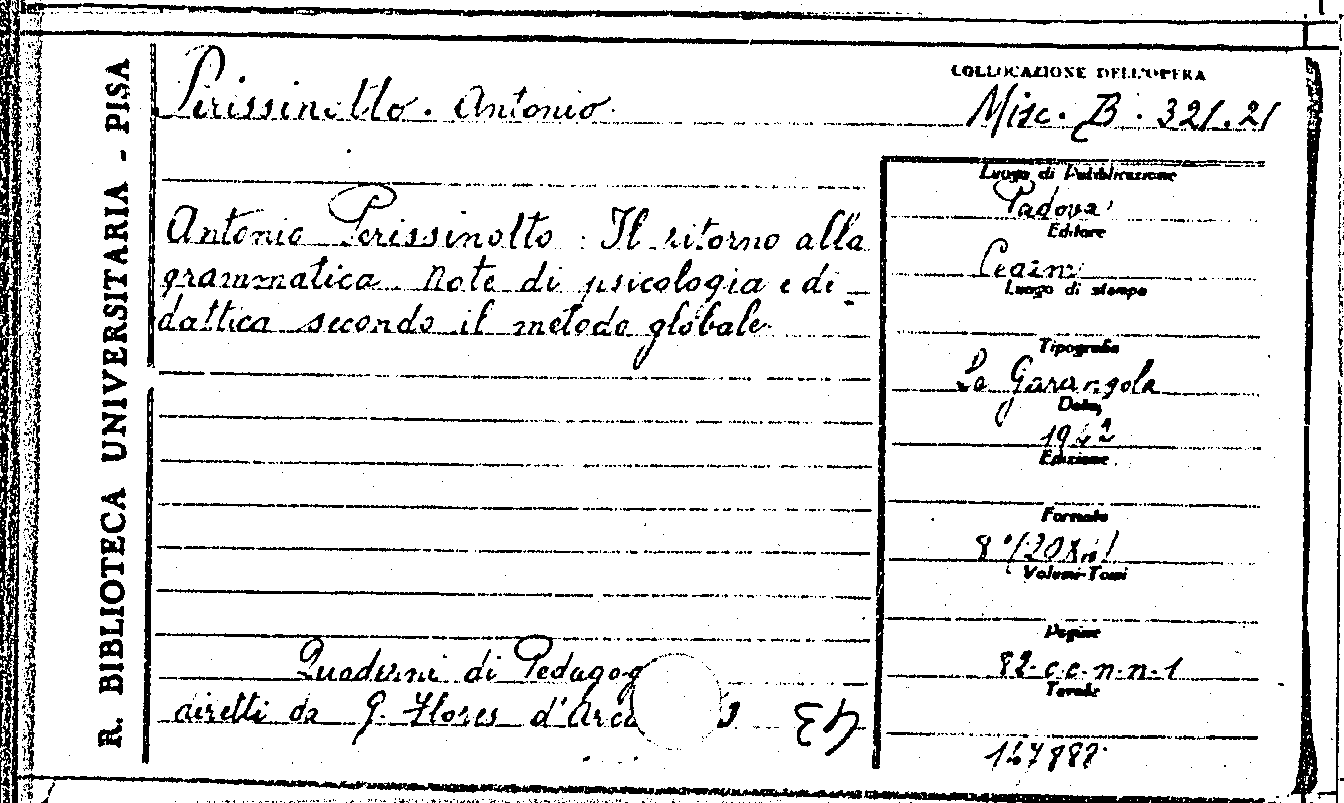 R. BIBLIOTECA UNIVERSITARIA - PISA
Perissinotto. Antonio.
COLLOCAZIONE DELL'OPERA
Misc. B. 321.21
Antonio Perissinotto. Il ritorno alla
grammatica. Note di psicologia e di-
dattica secondo il metodo globale
Quaderni di Pedagog
diretti da G. Flores d'Arca
Luogo di Pubblicazione
Padova
Editore
Cedam
Luogo di stampa
Tipografia
La Garangola
Data
Edizione
Formato
Volumi-Tomi
Pagine
82-c.c.n.n.1
Tavole